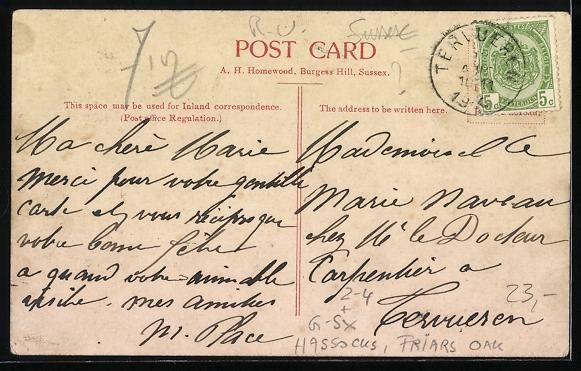 R.U. Sussex
7/12
?
POST CARD
A. H. Homewood, Burgess Hill, Sussex.
TERVUEREN
5c 5c
This space may be used for Inland correspondence.
(Post office Regulation.)
The address to be written here.
Ma chère Marie
merci pour votre gentille
carte et vous réciproque
votre bonne fête
a quand votre aimable
visite. mes amities
M. Place
Mademoiselle
Marie Naveau
chez Mr le Docteur
Carpentier a
Tervueren
2-4
+
G-SX
23,-
HASSOCKS, FRIARS OAK